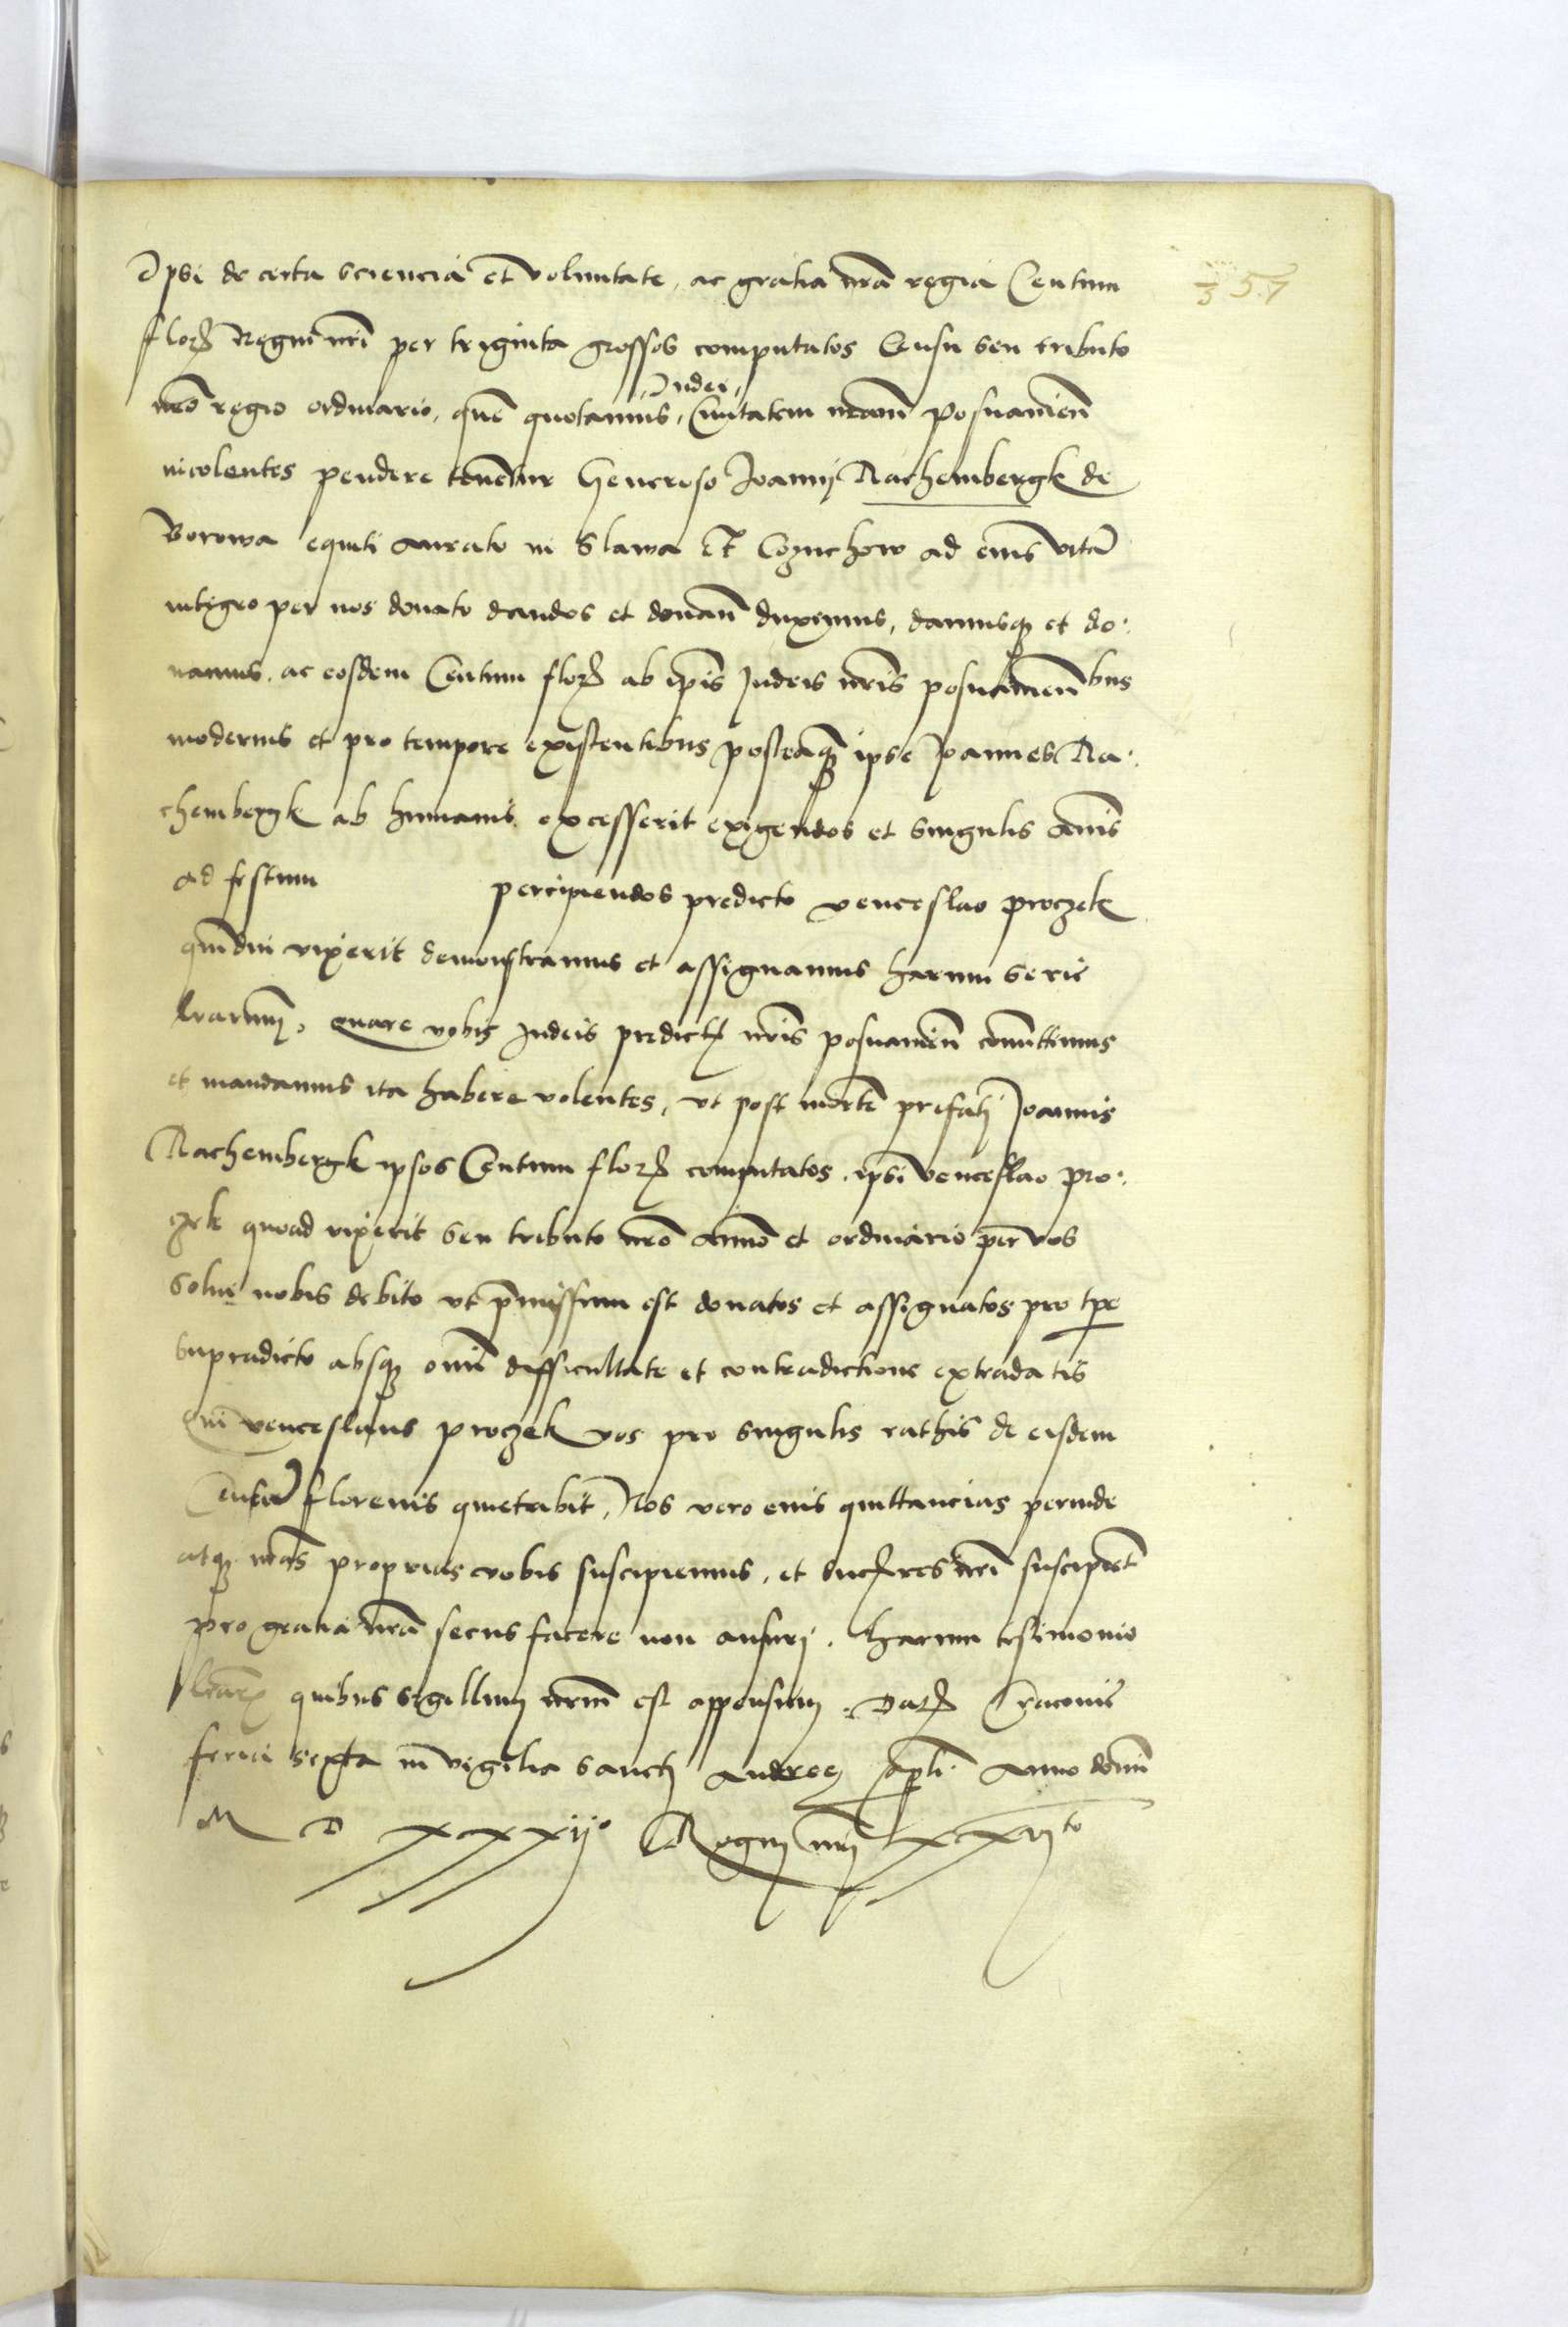 357
Ipsi de certa sciencia et voluntate, ac gratia nrã regia Centum
flor. Regni nrĩ per triginta grossos computatos Censu seu tributo
nrõ regio ordinario, quẽ quotannis, Iudei, Ciuitatem nrãm Posnanieñ
incolentes pendere tenẽtur Generoso Joannj Rachembergk de
Borowa equiti aurato in Slawa Et Cozuchow ad eius vitã
integro per nos donato dandos et donañ duximus, damusq et do.
namus. ac eosdem Centum flor. ab ipĩs Judeis nrĩs posnanieñbus
modernis et pro tempore existentibus posteaq̃ ipse Joannes Ra.
chembergk ab humanis excesserit exigendos et singulis annis
ad festum percipiendos predicto venceslao proczek
qmdiu vixerit demonstramus et assignamus harum serie
lrarum. Quare vobis Judeis predict. nrĩs posnanieñ comittimus
et mandamus ita habere volentes, vt post mortẽ prefatj Joannis
Rachembergk ipsos Centum flor. computatos. ipsi Venceslao pro.
czek quoad vixerit seu tributo nrõ annuo et ordinario per vos
solui nobis debito vt p̃missum est donatos et assignatos pro tpe
supradicto absq omni difficultate et contradictione extradatis
Qui venceslaus proczek vos pro singulis rathis de eisdem
Centum florenis quietabit, Nos vero eius quittancias perinde
atq nrãs proprias a vobis suscipiemus, et succ̃res nrĩ suscipient
pro gratia nrã secus facere non ausurj. Harum testimonio
lrar. quibus sigillum nrum est appensum. Dat. Cracouie
feria sexta in vigilia sanctj Andree apli. Anno domini
M D xxxij° Regnj nrj xxvjto